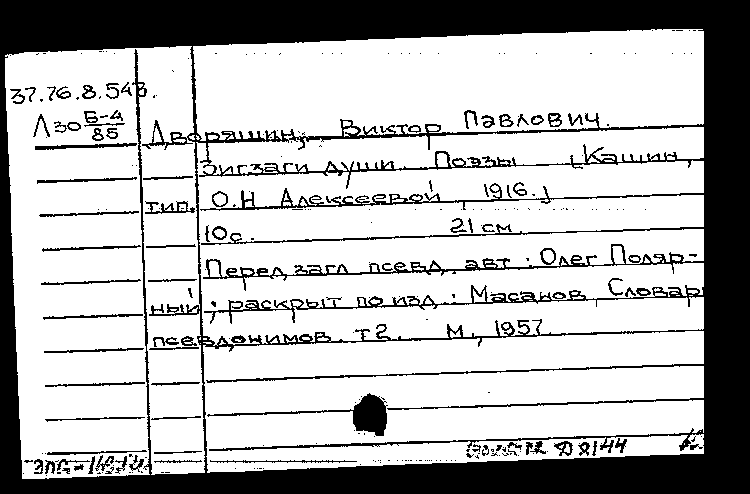 37.76.8.543.
Л30 Б-4/85
Дворяшин, Виктор Павлович.
Зигзаги души. Поэзы [Кашин,
тип. О.Н Алексеевой, 1916.]
10с. 21 см.
Перед загл псевд. авт: Олег Поляр-
ный; раскрыт по изд.: Масанов Словарь
псевдонимов. т2. М., 1957.
Д 2144